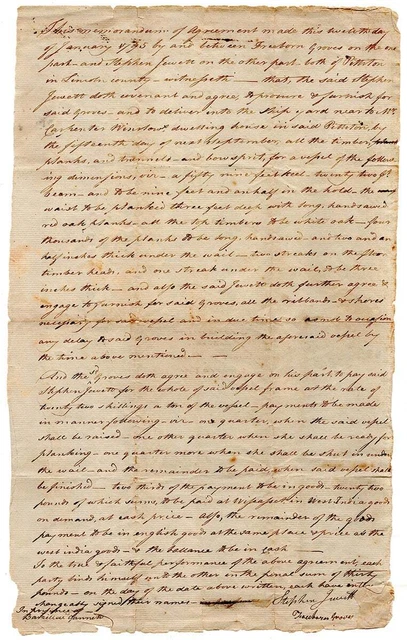 This memorandum of Agreement made this twelfth day
of January 1795 by and between Freeborn Groves on the one
part and Stephen Jewett on the other part both of Pittston
in Lincoln county – witnesseth – that, the said Stephen
Jewett doth covenant and agree, to procure & furnish for
said Groves – and to deliver into the ship yard near to Mr.
Carpenter Winslow's dwelling house in said Pittston, by
the fifteenth day of next September, all the timber,
planks, and trunnels – and bowsprit, for a vessel of the follow-
ing dimensions, viz – a fifty nine feet keel – twenty two
beam – and to be nine feet and an half in the hold – the
waist to be planked three feet deep with long, handsawed
red oak planks – all the top timbers to be white oak – four
thousands of the planks to be long, handsawed – and two and an
half inches thick under the wail – two streaks on the floor
timber heads, and one streak under the wail, to be three
inches thick – and also the said Jewett doth further agree &
engage to furnish for said Groves, all the ribbands & shores
necessary for said vessel and in due time, so as not to occasion
any delay to said Groves in building the aforesaid vessel by
the time above mentioned —
And the sd Groves doth agree and engage on his part to pay said
Stephen Jewett for the whole of said vessel frame at the rate of
twenty two shillings a ton of the vessel – payments to be made
in manner following – viz – one quarter, when the said vessel
shall be raised – one other quarter when she shall be ready for
planking – one quarter more when she shall be shut in under
the wail – and the remainder to be paid, when said vessel shall
be finished – two thirds of the payment to be in goods – twenty two
pounds of which sum, to be paid at Wiscasset in West India goods
on demand, at cash price – Also, the remainder of the goods
payment to be in english goods at the same place & price as the
west india goods – & the ballance to be in cash —
To the true & faithful performance of the above agreement, each
party binds himself to the other in the penal sum of thirty
pounds – on the day of the date above written, each have inter-
changeably signed their names
In presence of
Stephen Jewett
Freeborn Groves